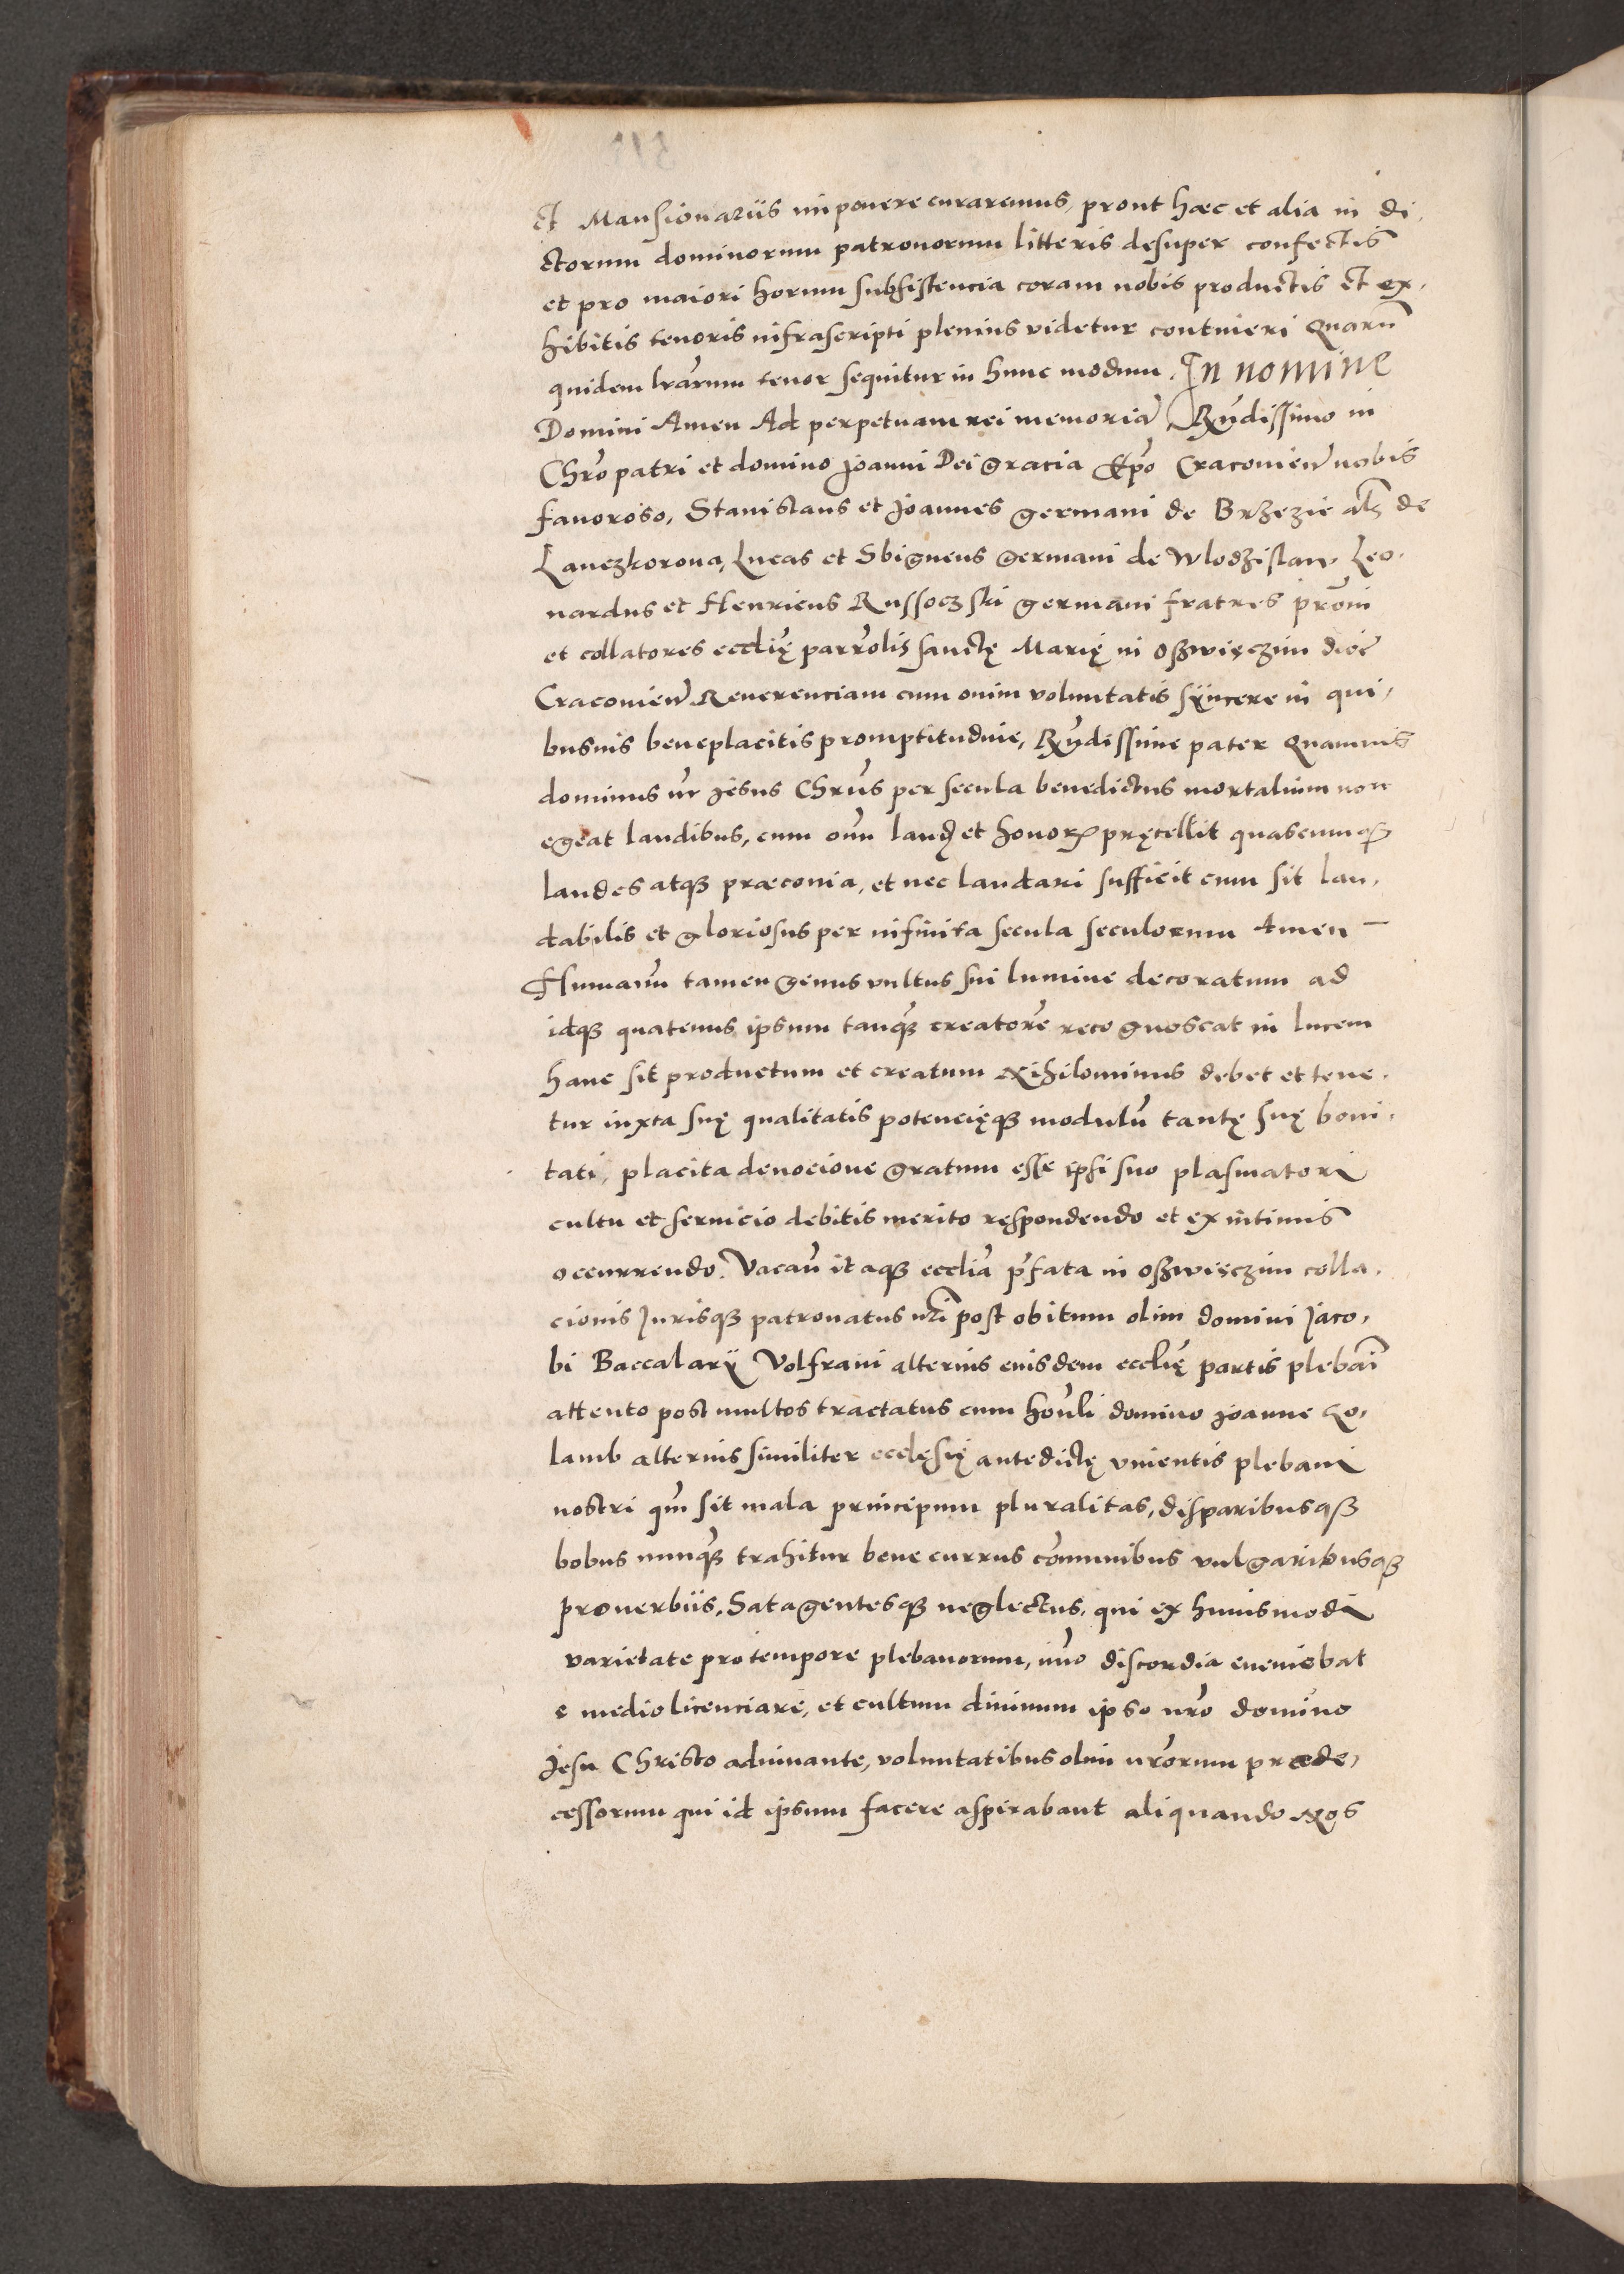 et Mansionariis imponere curaremus, prout hæc et alia in di,
ctorum dominorum patronorum litteris desuper confectis
et pro maiori horum subsistencia coram nobis productis et ex,
hibitis tenoris infrascripti plenius videtur contineri Quarū
quidem lrārum tenor sequitur in hunc modum. In nomine
Domini Amen Ad perpetuam rei memoriā, Rṽdissimo in
Chrō patri et domino Joanni Dei gracia Ep̄o Cracovień nobis
favoroso, Stanislaus et Joannes germani de Brzezie al̄s de
Lanczkorona, Lucas et Sbigneus germani de Wlodzislaw Leo,
nardus et Henricus Russoczski germani fratres prōni
et collatores eccl̄ię parrōlis sanctę Marię in Oszwięczim dioc̄
Cracovień Reverenciam cum omni voluntatis syncere in qui,
busvis beneplacitis promptitudine, Rṽdissime pater Quamvis
dominus nr̄ Jesus Chrūs per secula benedictus mortalium non
egeat laudibus, cum om̄n laudę et honorę pręcellit quascumq̄
laudes atqȝ præconia, et nec laudari sufficit cum sit lau,
dabilis et gloriosus per infinita secula seculorum Amen —
Humanū tamen genus vultus sui lumine decoratum ad
idqȝ quatenus ipsum tanqȝ creatorē recognoscat in lucem
hanc sit productum et creatum Nihilominus debet et tene,
tur iuxta suę qualitatis potencięqȝ modulū tantę suę boni,
tati, placita devocione gratum esse ipsi suo plasmatori
cultu et servicio debitis merito respondendo et ex intimis
occurrendo. Vacan̄ itaqȝ eccliā p̄fata in Oszwięczim colla,
cionis Jurisqȝ patronatus nr̄i post obitum olim domini Jaco,
bi Baccalarÿ Volfrani alterius eiusdem eccl̄ię partis plebāi
attento post multos tractatus cum honl̄i domino Joanne Go,
lamb alterius similiter ecclęsię antedictę vnientis plebani
nostri qm̄ sit mala principum pluralitas, disparibusqȝ
bobus nunqȝ trahitur bene currus cōmunibus vulgaribusqȝ
proverbiis, Satagentesqȝ neglectus, qui ex huiusmodi
varietate pro tempore plebanorum, im̄o discordia eveniebat
e medio licenciare, et cultum divinum ipso nrō domino
Jesu Christo adiuvante, voluntatibus olim nrōrum præde,
cessorum qui id ipsum facere aspirabant aliquando nos